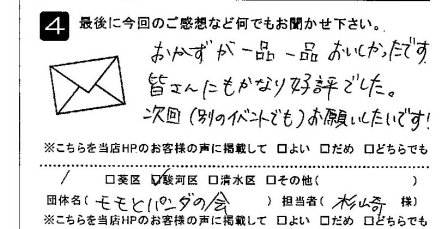 4 最後に今回のご感想など何でもお聞かせ下さい。
おかずが一品一品おいしかったです
皆さんにもかなり好評でした。
次回(別のイベントでも)お願いしたいです!
※こちらを当店HPのお客様の声に掲載して □よい □だめ □どちらでも
□葵区 ☑駿河区 □清水区 □その他( )
団体名( モモとパンダの会 ) 担当者( 杉山奇 様)
※こちらを当店HPのお客様の声に掲載して □よい □だめ □どちらでも